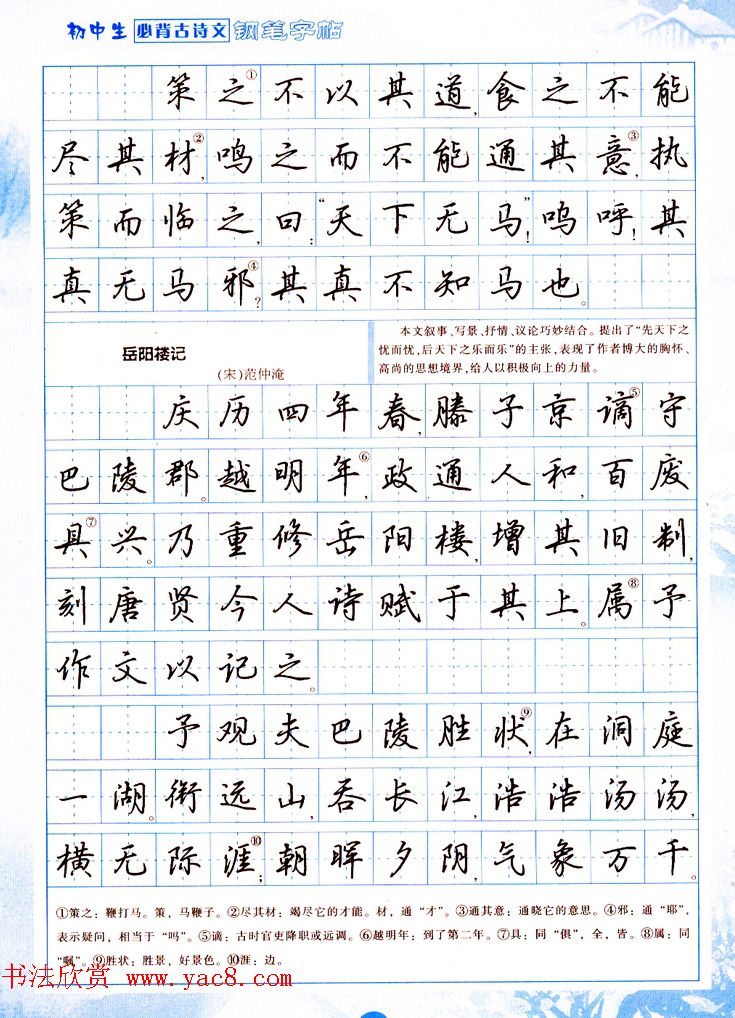 初中生 必背古诗文 钢笔字帖
策之①不以其道,食之不能
尽其材②,鸣之而不能通其意③,执
策而临之,曰:“天下无马”!呜呼!其
真无马邪④?其真不知马也。
岳阳楼记
(宋)范仲淹
本文叙事、写景、抒情、议论巧妙结合。提出了“先天下之
忧而忧,后天下之乐而乐”的主张,表现了作者博大的胸怀、
高尚的思想境界,给人以积极向上的力量。
庆历四年春,滕子京谪⑤守
巴陵郡。越明年⑥,政通人和,百废
具⑦兴。乃重修岳阳楼,增其旧制,
刻唐贤今人诗赋于其上。属⑧予
作文以记之。
予观夫巴陵胜状⑨,在洞庭
一湖。衔远山,吞长江,浩浩汤汤,
横无际涯⑩;朝晖夕阴,气象万千。
①策之:鞭打马。策,马鞭子。②尽其材:竭尽它的才能。材,通“才”。③通其意:通晓它的意思。④邪:通“耶”,
表示疑问,相当于“吗”。⑤谪:古时官吏降职或远调。⑥越明年:到了第二年。⑦具:同“俱”,全,皆。⑧属:同
“嘱”。⑨胜状:胜景,好景色。⑩涯:边。
书法欣赏 www.yac8.com